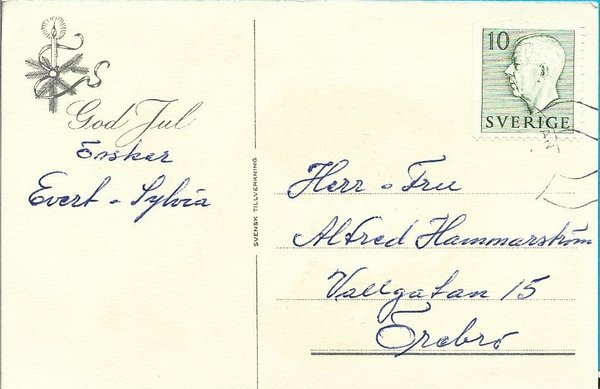 God Jul
Önskar
Evert o Sylvia
SVENSK TILLVERKNING
10
SVERIGE
Herr o Fru
Alfred Hammarström
Vallgatan 15
Örebro